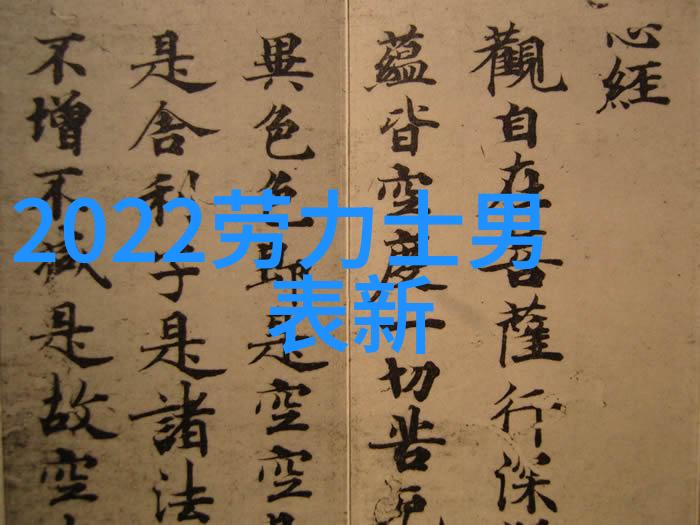 心經
觀自在菩薩行深
蘊皆空度一切苦厄
異色色即是空空是
是舍利子是諸法
不增不減是故空
2022劳力士男
表新